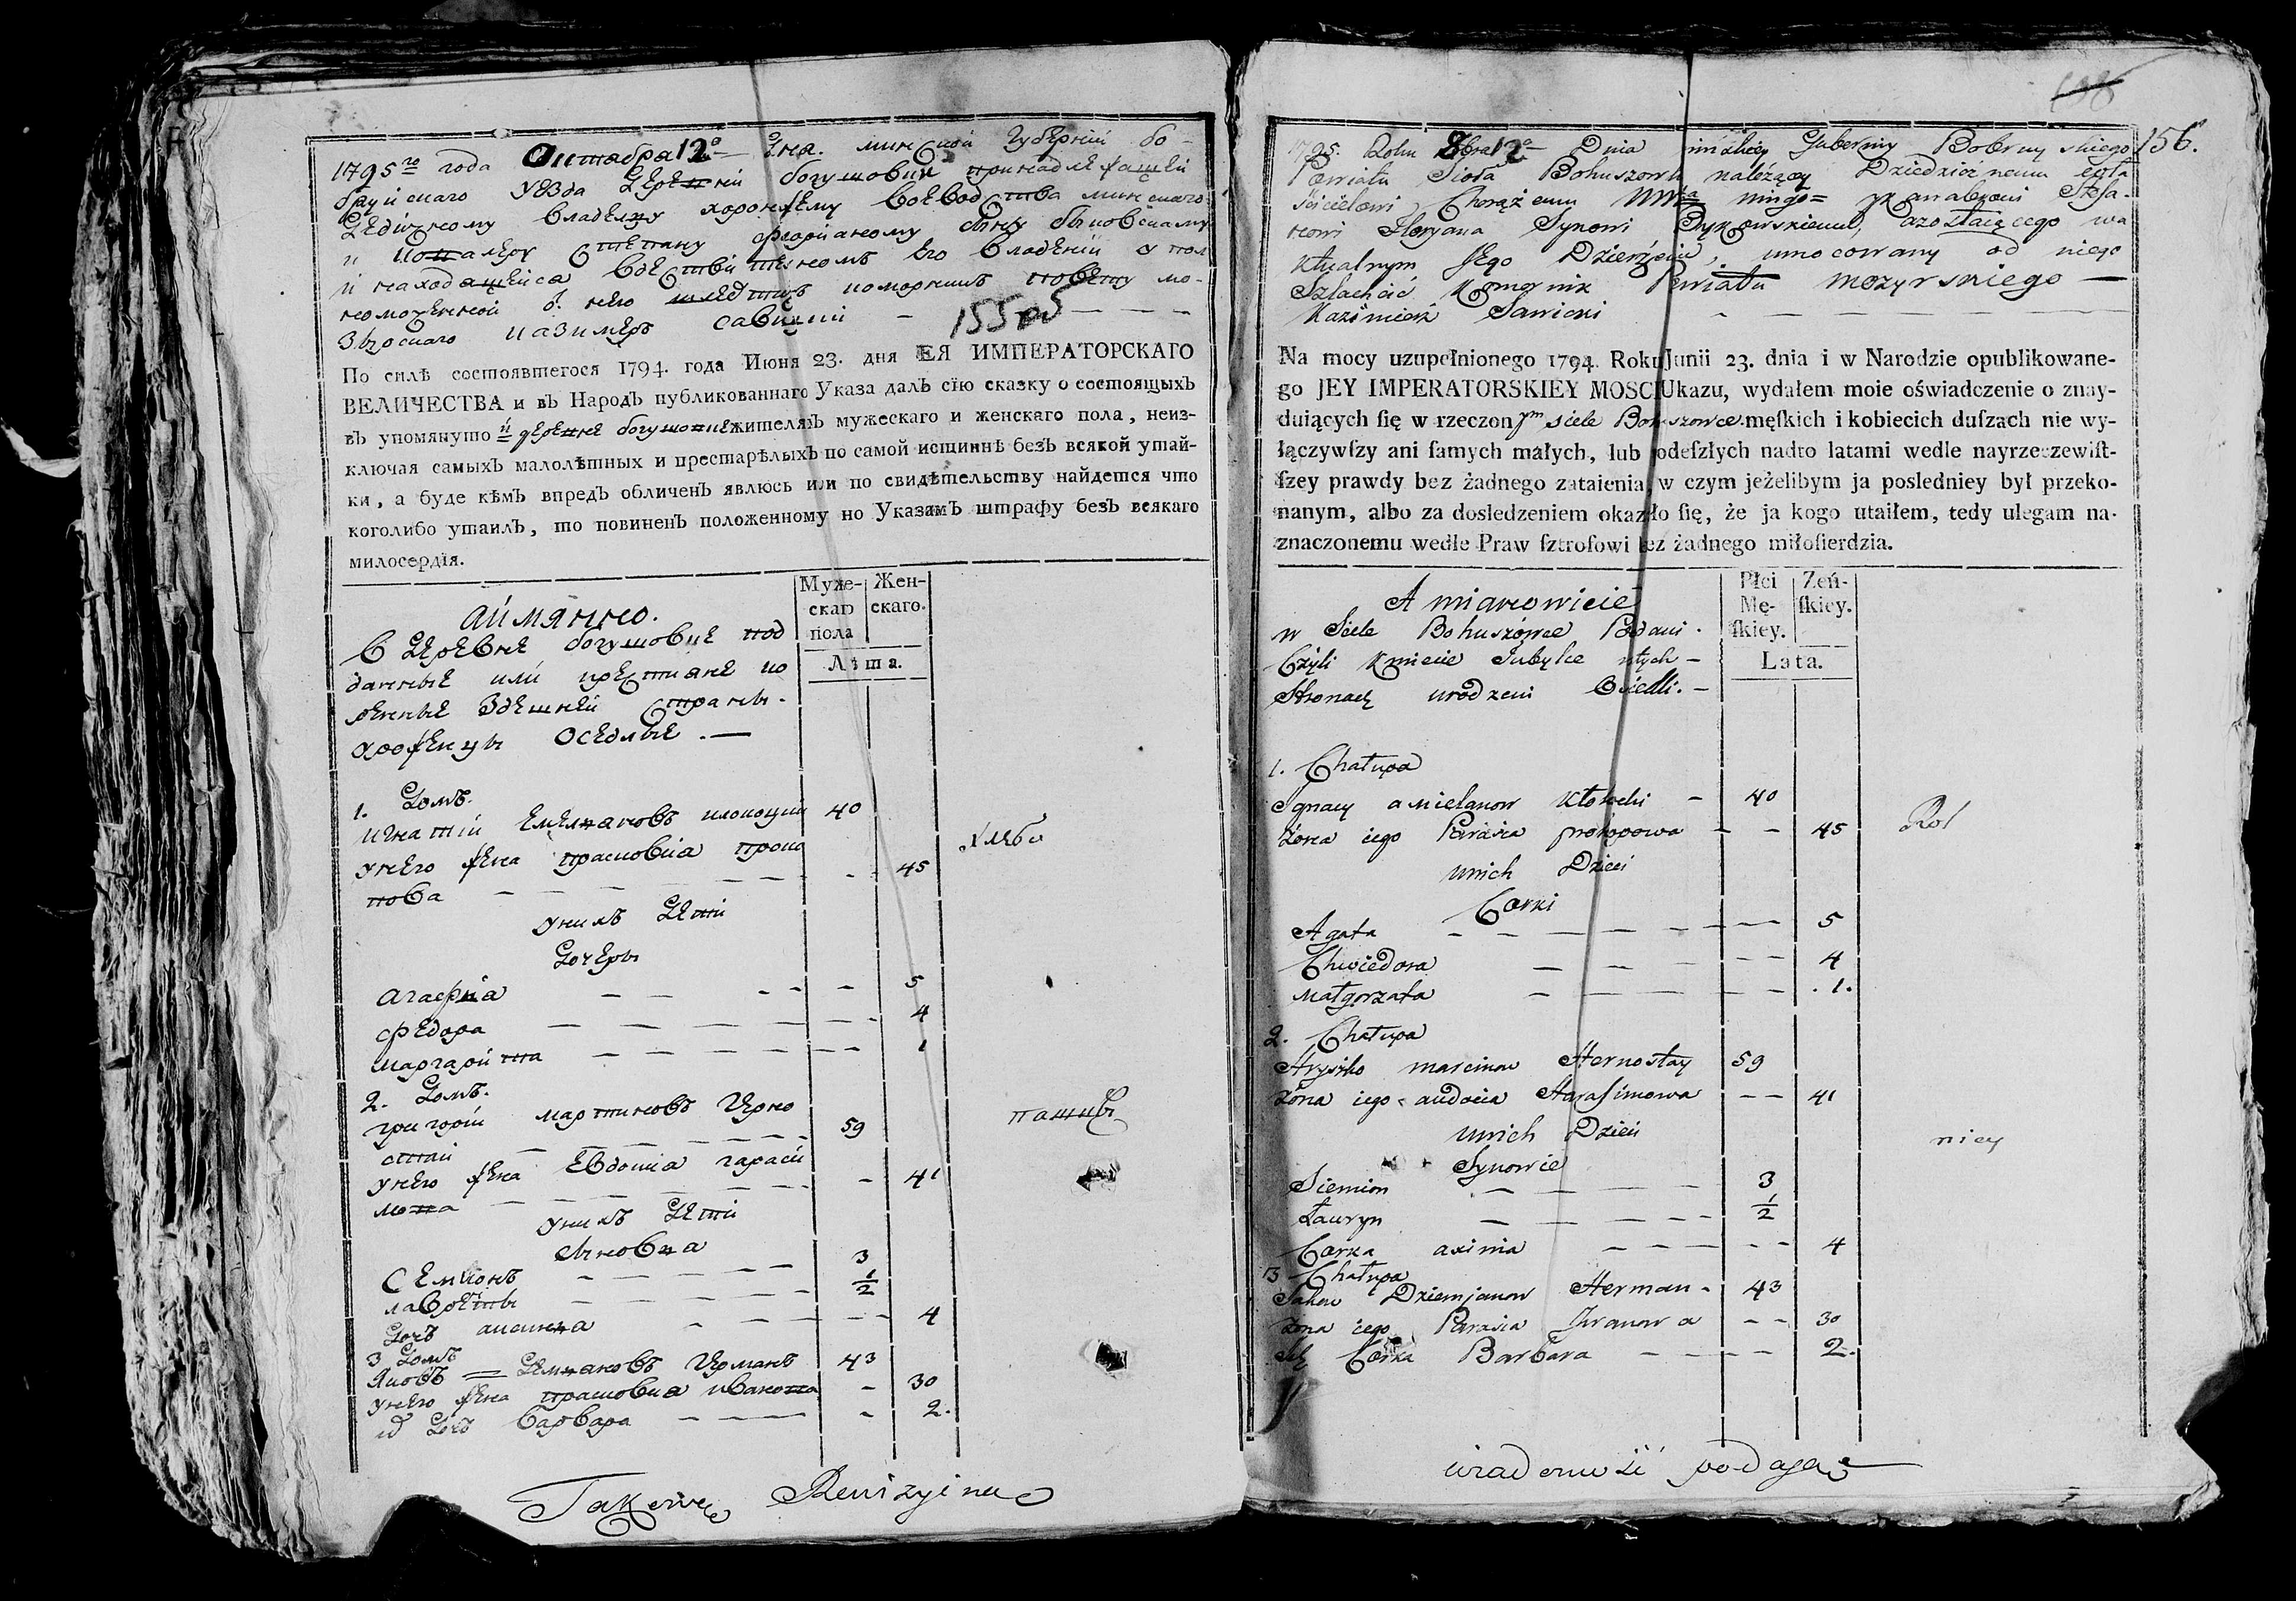 1795го года Октября 12о дня. минской губернии бо-
бруйскаго уезда деревни богушовки принадлежащей
дедичному владельцу хоронжему воеводства минскаго
и находящейся вдействительномъ его владении упол
номоченной о. него шляхтичъ коморникъ повету мо-
зырскаго казимеръ савицкий
155 об
По силѣ состоявшегося 1794. года Июня 23. дня ЕЯ ИМПЕРАТОРСКАГО
ВЕЛИЧЕСТВА и въ Народъ публикованнаго Указа далъ сїю сказку о состоящыхъ
въ упомянуто й деревне богушовке жителяхъ мужескаго и женскаго пола, неиз-
ключая самыхъ малолѣтных и престарѣлыхъ по самой истиннѣ безъ всякой утай-
ки, а буде кѣмъ впредъ обличенъ явлюсь или по свидѣтельству найдется что
коголибо утаилъ, то повиненъ положенному по Указамъ штрафу безъ всякаго
милосердїя.
Муже- Жен-
скаго скаго.
пола
Лѣта.
аимянно.
в деревне богушовке под
данные или крестьяне ко
ренные здешней страны.
уроженцы оседлые.
1. Домъ.
игнатий емельяновъ клокоцки 40
унего жена прасковия проко
пова 45
унихъ дети
дочеры
агафия 5
федора 4
маргарита 1
хлебо
2. Домъ.
григорий мартиновъ герно
стай 59
унего жена евдокиа гараси
мова 41
унихъ дети
сыновья
семионъ 3
лаврен 1/2
дочъ аксинья 4
пашцы
3 Домъ
яковъ демьяновъ германъ 43
унего жена прасковиа иванова 30
их дочъ варвара 2.
Takowe Rewizyine
156.
1795. Roku 8bra 12o Dnia minskiey Guberny Bobruyskiego
Powiatu Sioła Bohuszowki należący Dziedzicznemu
Floryana Synowi
ktualnym Jego Dzierżeniu, umocowany od niego
Szlachcic Komornik Powiatu mozyrskiego
Kazimierz Sawicki
Na mocy uzupełnionego 1794. Roku Junii 23. dnia i w Narodzie opublikowane-
go JEY IMPERATORSKIEY MOSCI Ukazu, wydałem moie oświadczenie o znay-
duiących się w rzeczonym siele Bohuszowce męskich i kobiecich duſzach nie wy-
łączywſzy ani ſamych małych, lub odeſzłych nadto latami wedle nayrzeczewiſt-
ſzey prawdy bez żadnego zataienia, w czym jeżelibym ja posledniey był przeko-
nanym, albo za dosledzeniem okazało się, że ja kogo utaiłem, tedy ulegam na-
znaczonemu wedle Praw ſztrofowi bez żadnego miłoſierdzia.
Płci Zeń-
Mę- ſkiey.
ſkiey.
Lata.
A mianowicie
w Siele Bohuszówce Podani
Czyli Kmiecie
Stronach urodzeni Osiedli.
1. Chałupa
Ignacy amielanow Kłokocki 40
żona iego Parasia prokopowa 45
unich Dzieci
Corki
Agata 5
Chwiedora 4
Małgorzata 1.
Rol
2. Chałupa
Hryszko marcinow Hernostay 59
żona iego audocia Harasimowa 41
unich Dzieci
Synowie
Siemion 3
Ławryn 1/2
Corka axinia 4
nicy
3 Chałupa
Jakow Dziemjanow Herman 43
żona iego Parasia Iwanowa 30
ich Corka Barbara 2.
wiadomość podaję